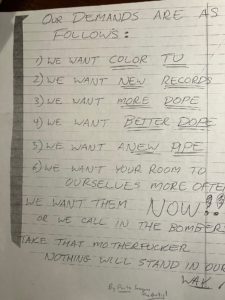 OUR DEMANDS ARE AS
FOLLOWS:
1) WE WANT COLOR TV
2) WE WANT NEW RECORDS
3) WE WANT MORE DOPE
4) WE WANT BETTER DOPE
5) WE WANT A NEW PIPE
6) WE WANT YOUR ROOM TO
OURSELVES MORE OFTEN
WE WANT THEM NOW!!
OR WE CALL IN THE BOMBER
TAKE THAT MOTHERFUCKER
NOTHING WILL STAND IN OUR
WAY
By